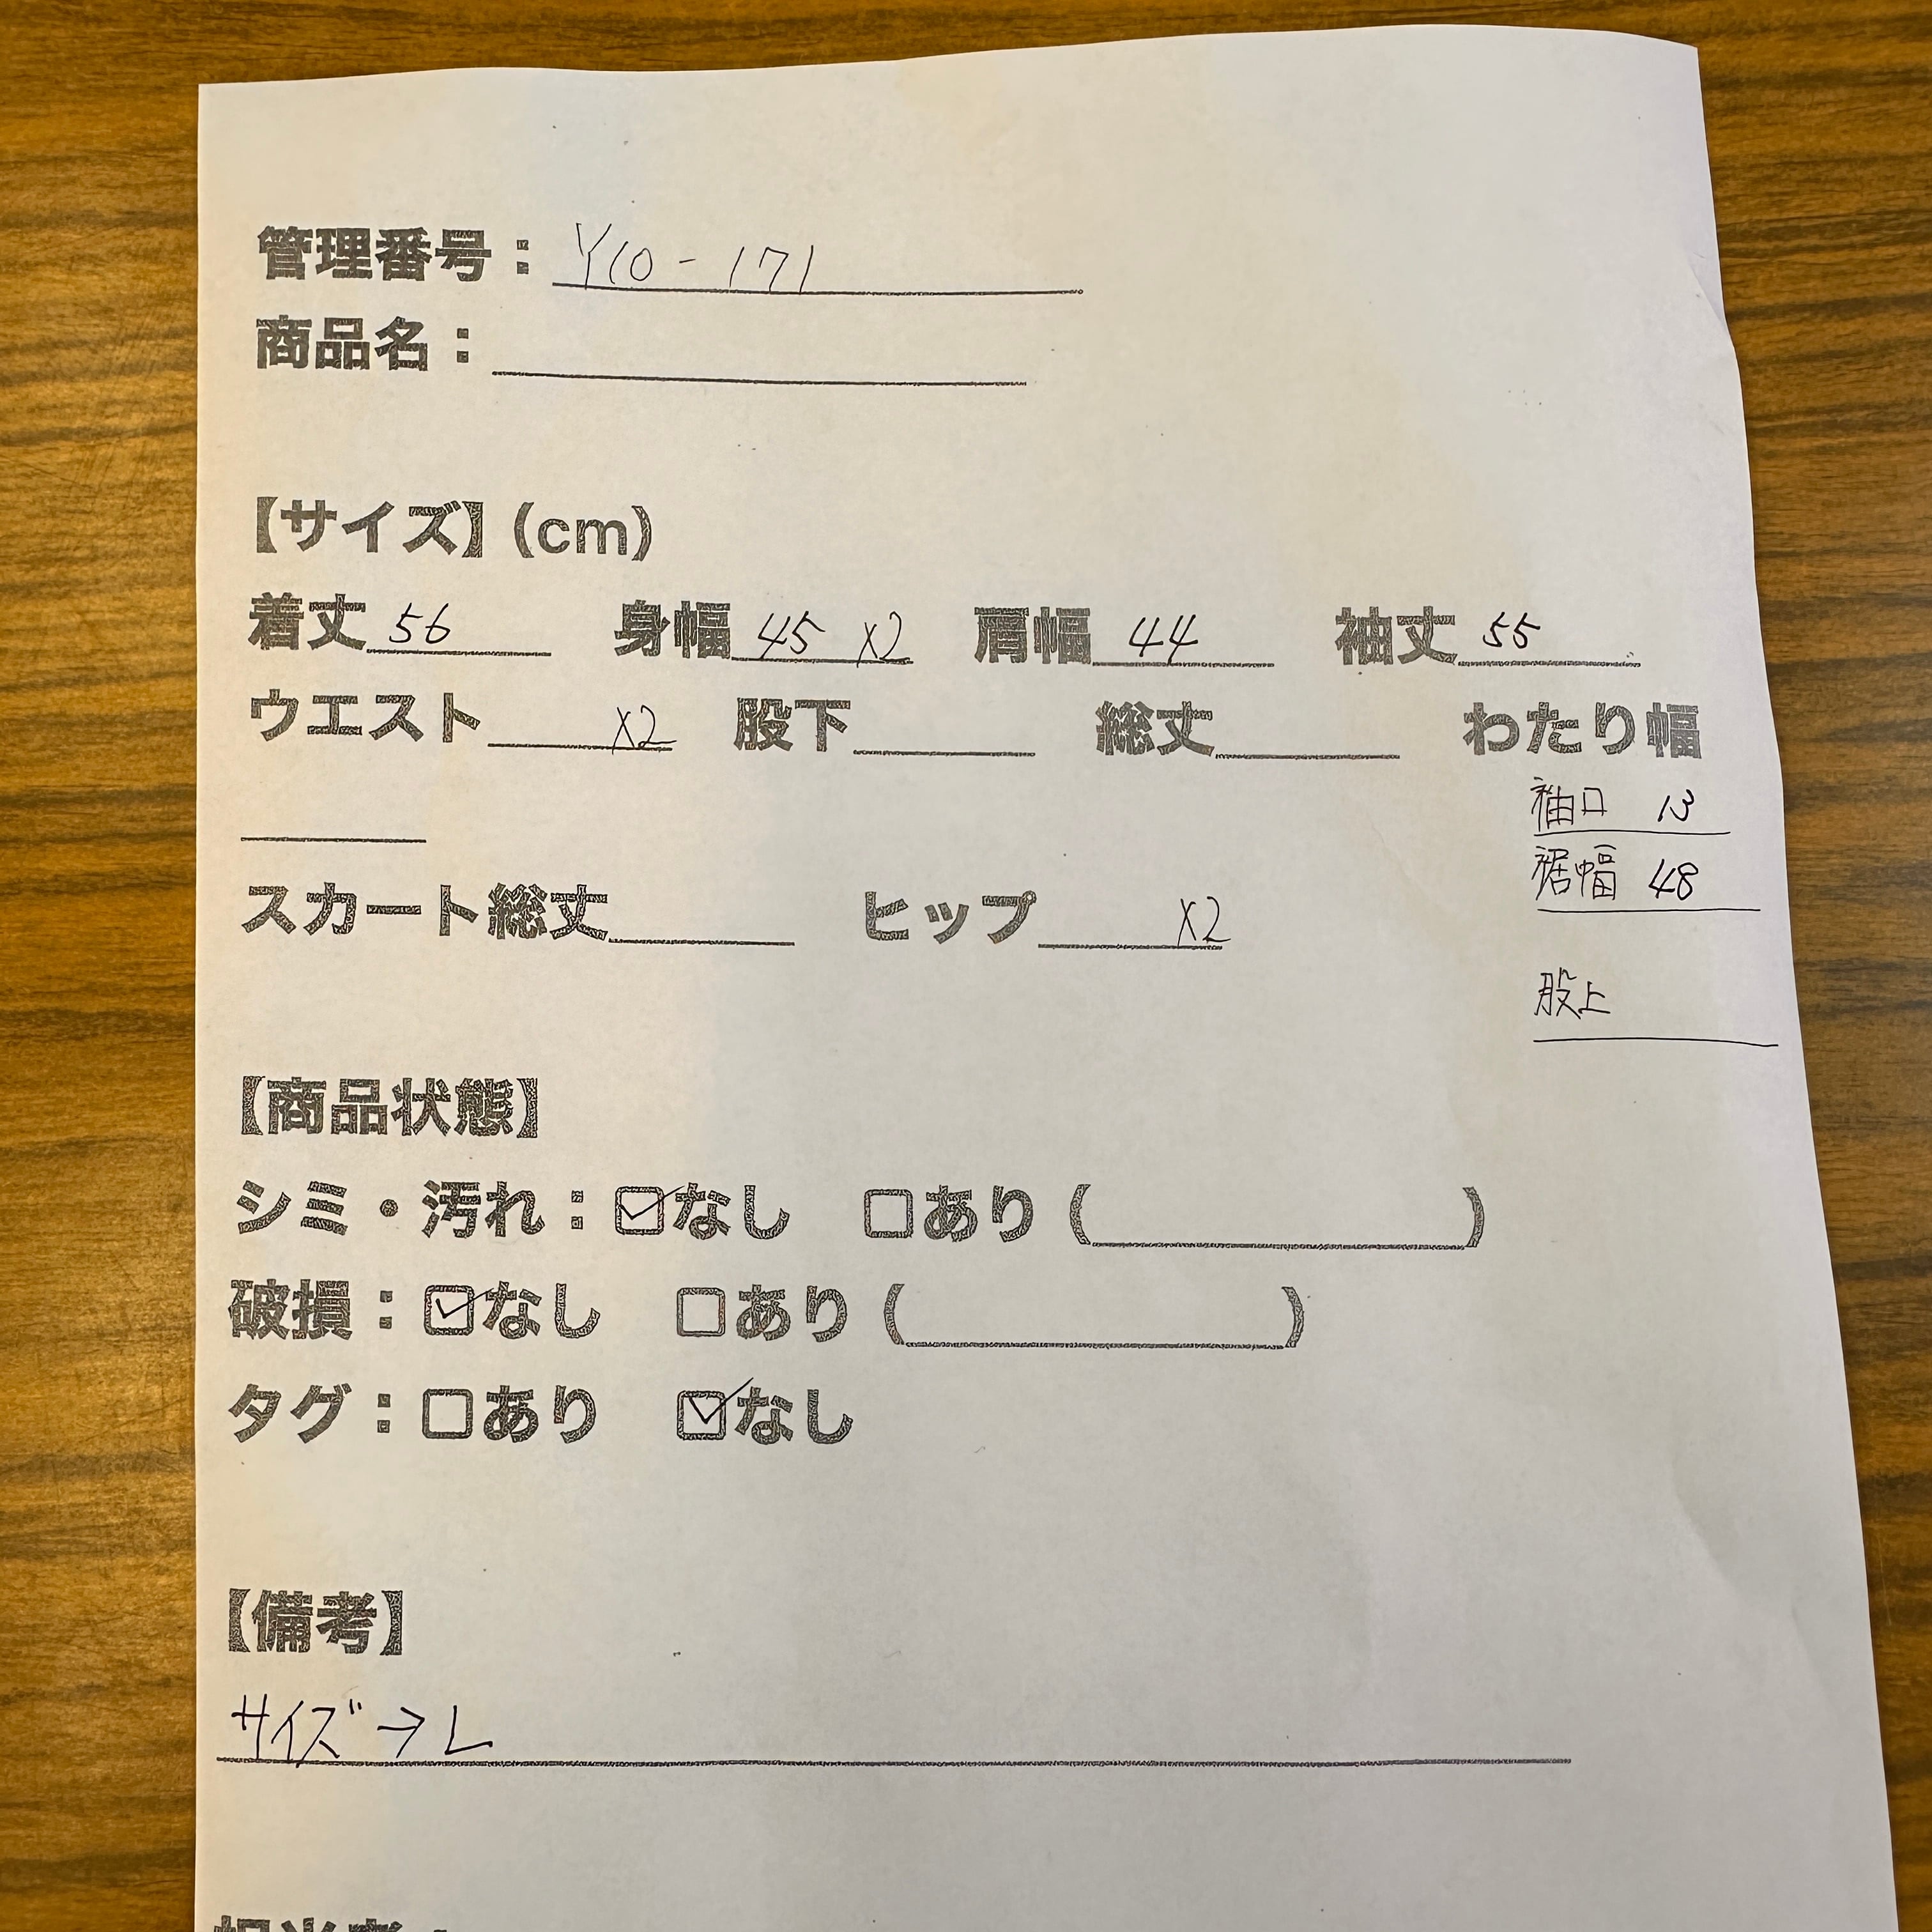 管理番号：Y10-171
商品名：
【サイズ】(cm)
着丈 56 身幅 45 X2 肩幅 44 袖丈 55
ウエスト X2 股下 総丈 わたり幅
袖口 13
裾幅 48
スカート総丈 ヒップ X2
股上
【商品状態】
シミ・汚れ：☑なし □あり（ ）
破損：☑なし □あり（ ）
タグ：□あり ☑なし
【備考】
サイズ→L